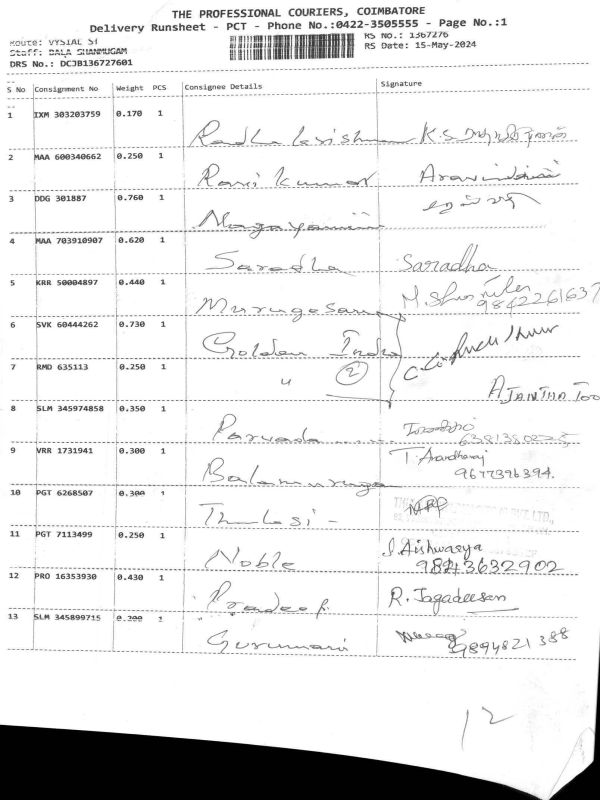 THE PROFESSIONAL COURIERS, COIMBATORE
Delivery Runsheet - PCT - Phone No.:0422-3505555 - Page No.:1
Route: VYSIAL ST RS No.: 1367276
Staff: BALA SHANMUGAM RS Date: 15-May-2024
DRS No.: DCJB136727601
S No Consignment No Weight PCS Consignee Details Signature
1 IXM 303203759 0.170 1
Radha Krishna K.S.
2 MAA 600340662 0.250 1
Ravi Kumar
3 DDG 301887 0.760 1
4 MAA 703910907 0.620 1
Saradha Saradha
5 KRR 50004897 0.440 1
Murugesan 9842261637
6 SVK 60444262 0.730 1
Golden India
7 RMD 635113 0.250 1
" 2
AJANTHA TOO
8 SLM 345974858 0.350 1
Parvada
6381380225
9 VRR 1731941 0.300 1
Balamuruga T. Anandharaj
9677396394.
10 PGT 6268507 0.300 1
Thulasi -
11 PGT 7113499 0.250 1
Noble J. Aishwarya
9843632902
12 PRO 16353930 0.430 1
Pradeep R. Jagadeesan
13 SLM 345899715 0.200 1
Gurumani 9894821388
12